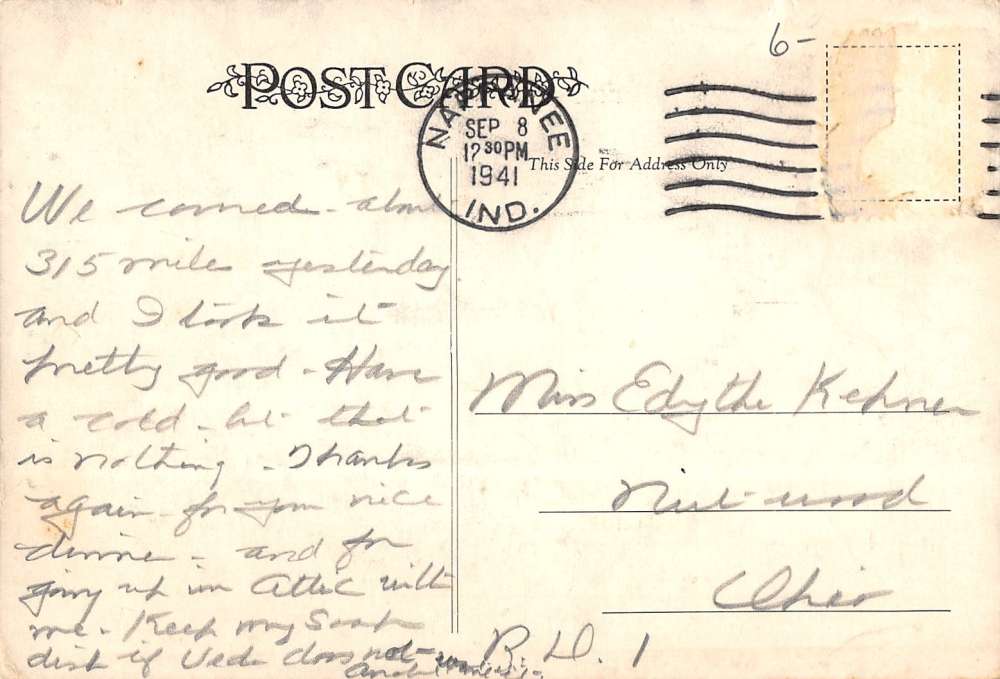 6-
POST CARD
NAPPANEE
SEP 8
12 30 PM
1941
IND.
This Side For Address Only
We
315 miles yesterday
and I took it
pretty good - Have
a cold - but that
is nothing - Thanks
again for your nice
dinner - and for
going up in Attic with
me - Keep my Soap
dish if Veda does not
Miss Edythe
Nutwood
Ohio
R. D. 1